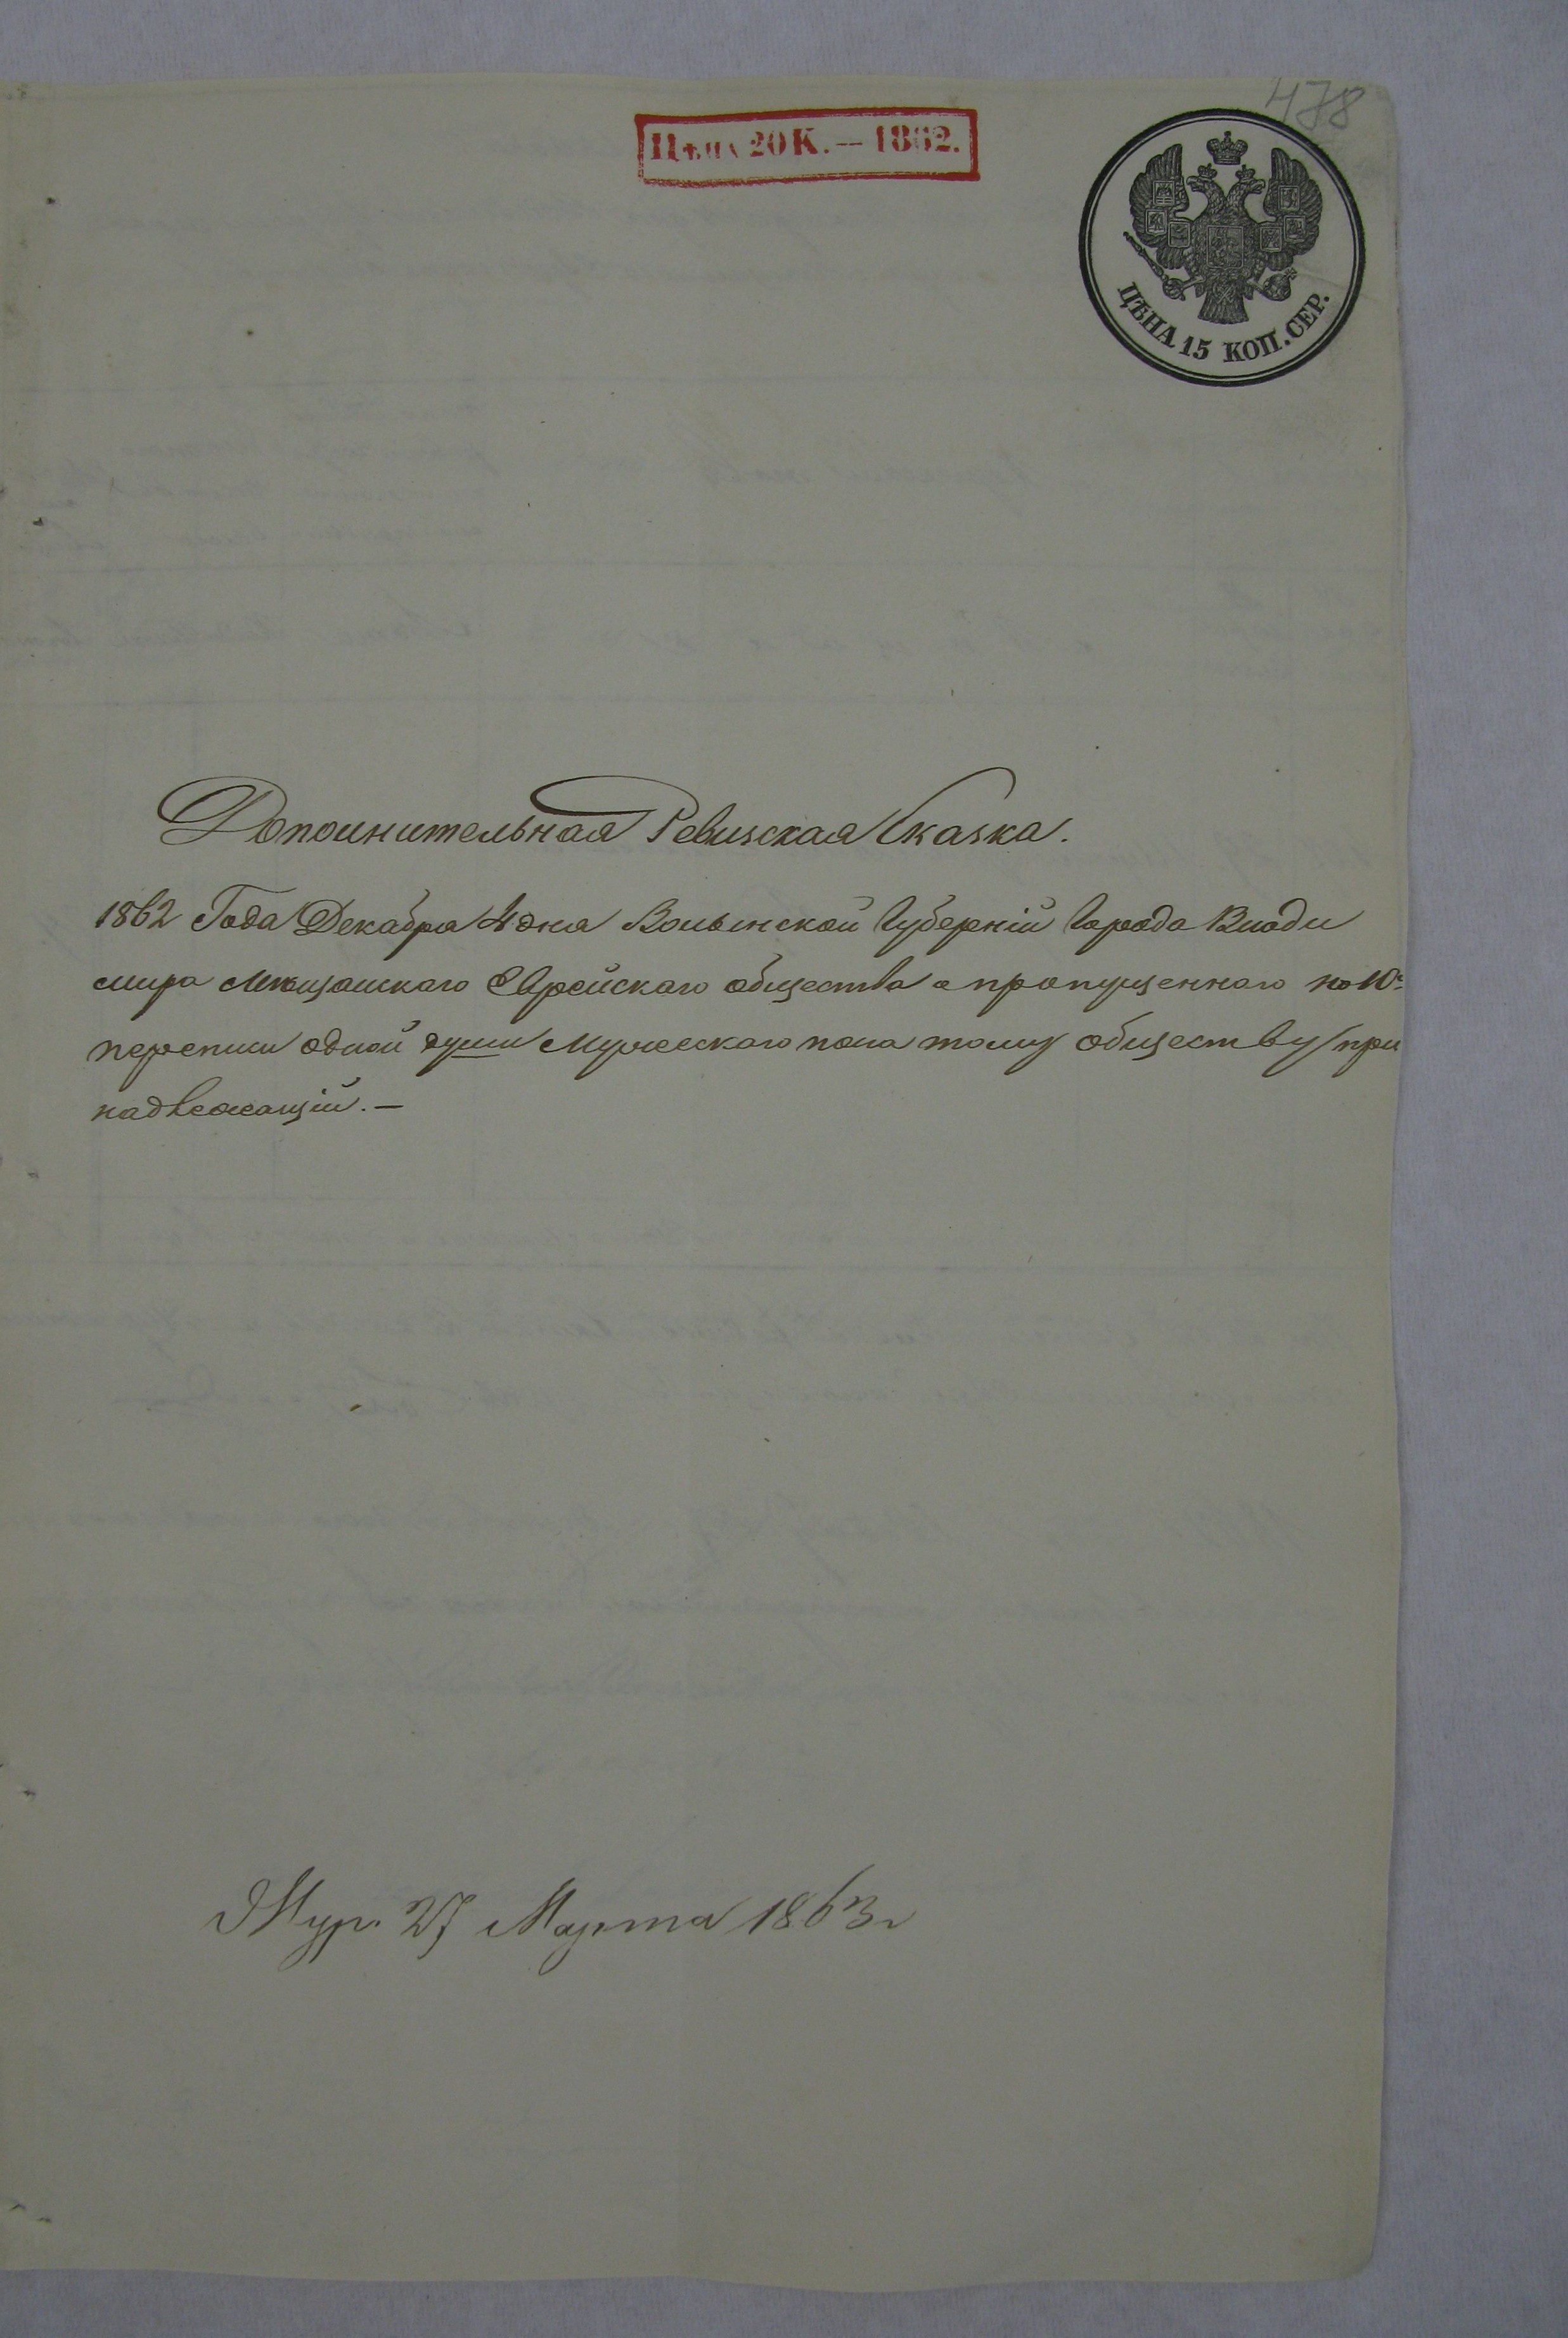 478
Цѣна 20 К. — 1862.
ЦѢНА 15 КОП. СЕР.
Дополнительная Ревизская Сказка.
1862 Года Декабря 4 дня Волынской Губерніи Города Влади
мира Мѣщанскаго Еврейскаго общества о пропущенного по 10й
переписи одной души Мужескаго пола тому обществу при
надлежащій. —
Жур. 27 Марта 1863 г